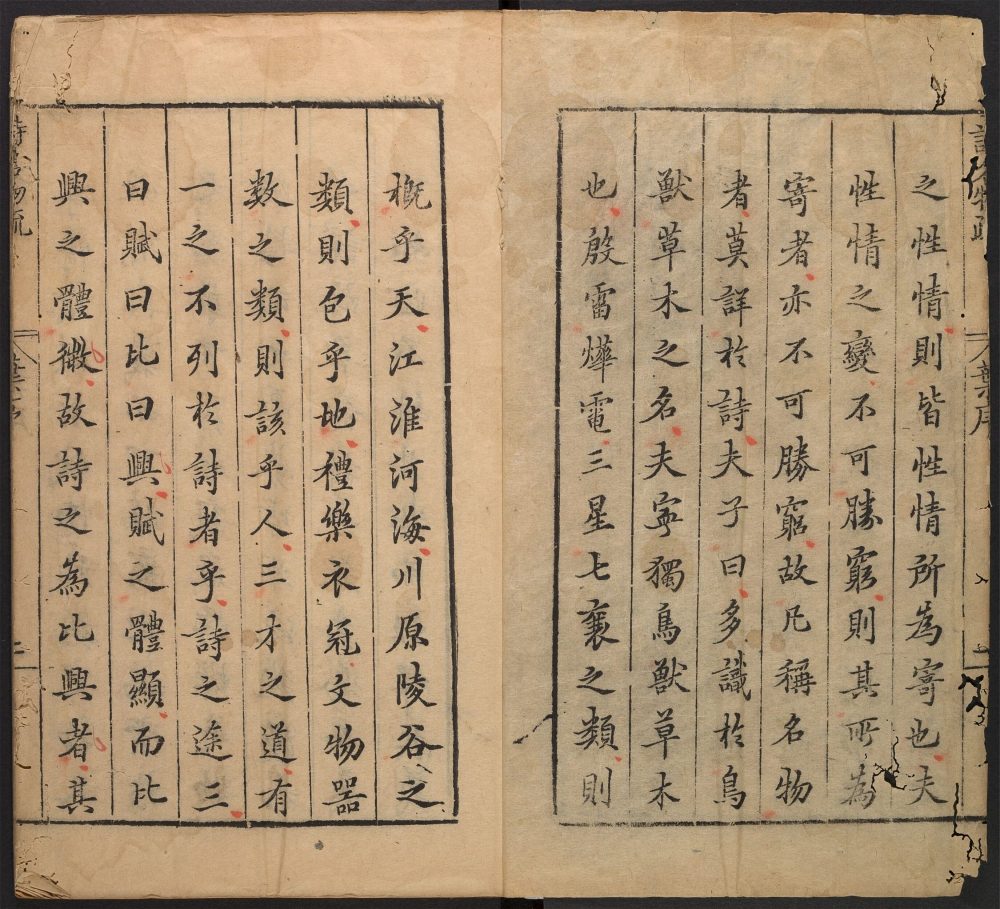 之性情則皆性情所為寄也夫
性情之變不可勝窮則其所為
寄者亦不可勝窮故凡稱名物
者莫詳於詩夫子曰多識於鳥
獸草木之名夫寧獨鳥獸草木
也殷雷燁電三星七襄之類則
概乎天江淮河海川原陵谷之
類則包乎地禮樂衣冠文物器
数之類則該乎人三才之道有
一之不列於詩者乎詩之途三
曰賦曰比曰興賦之體顯而比
興之體微故詩之為比興者其